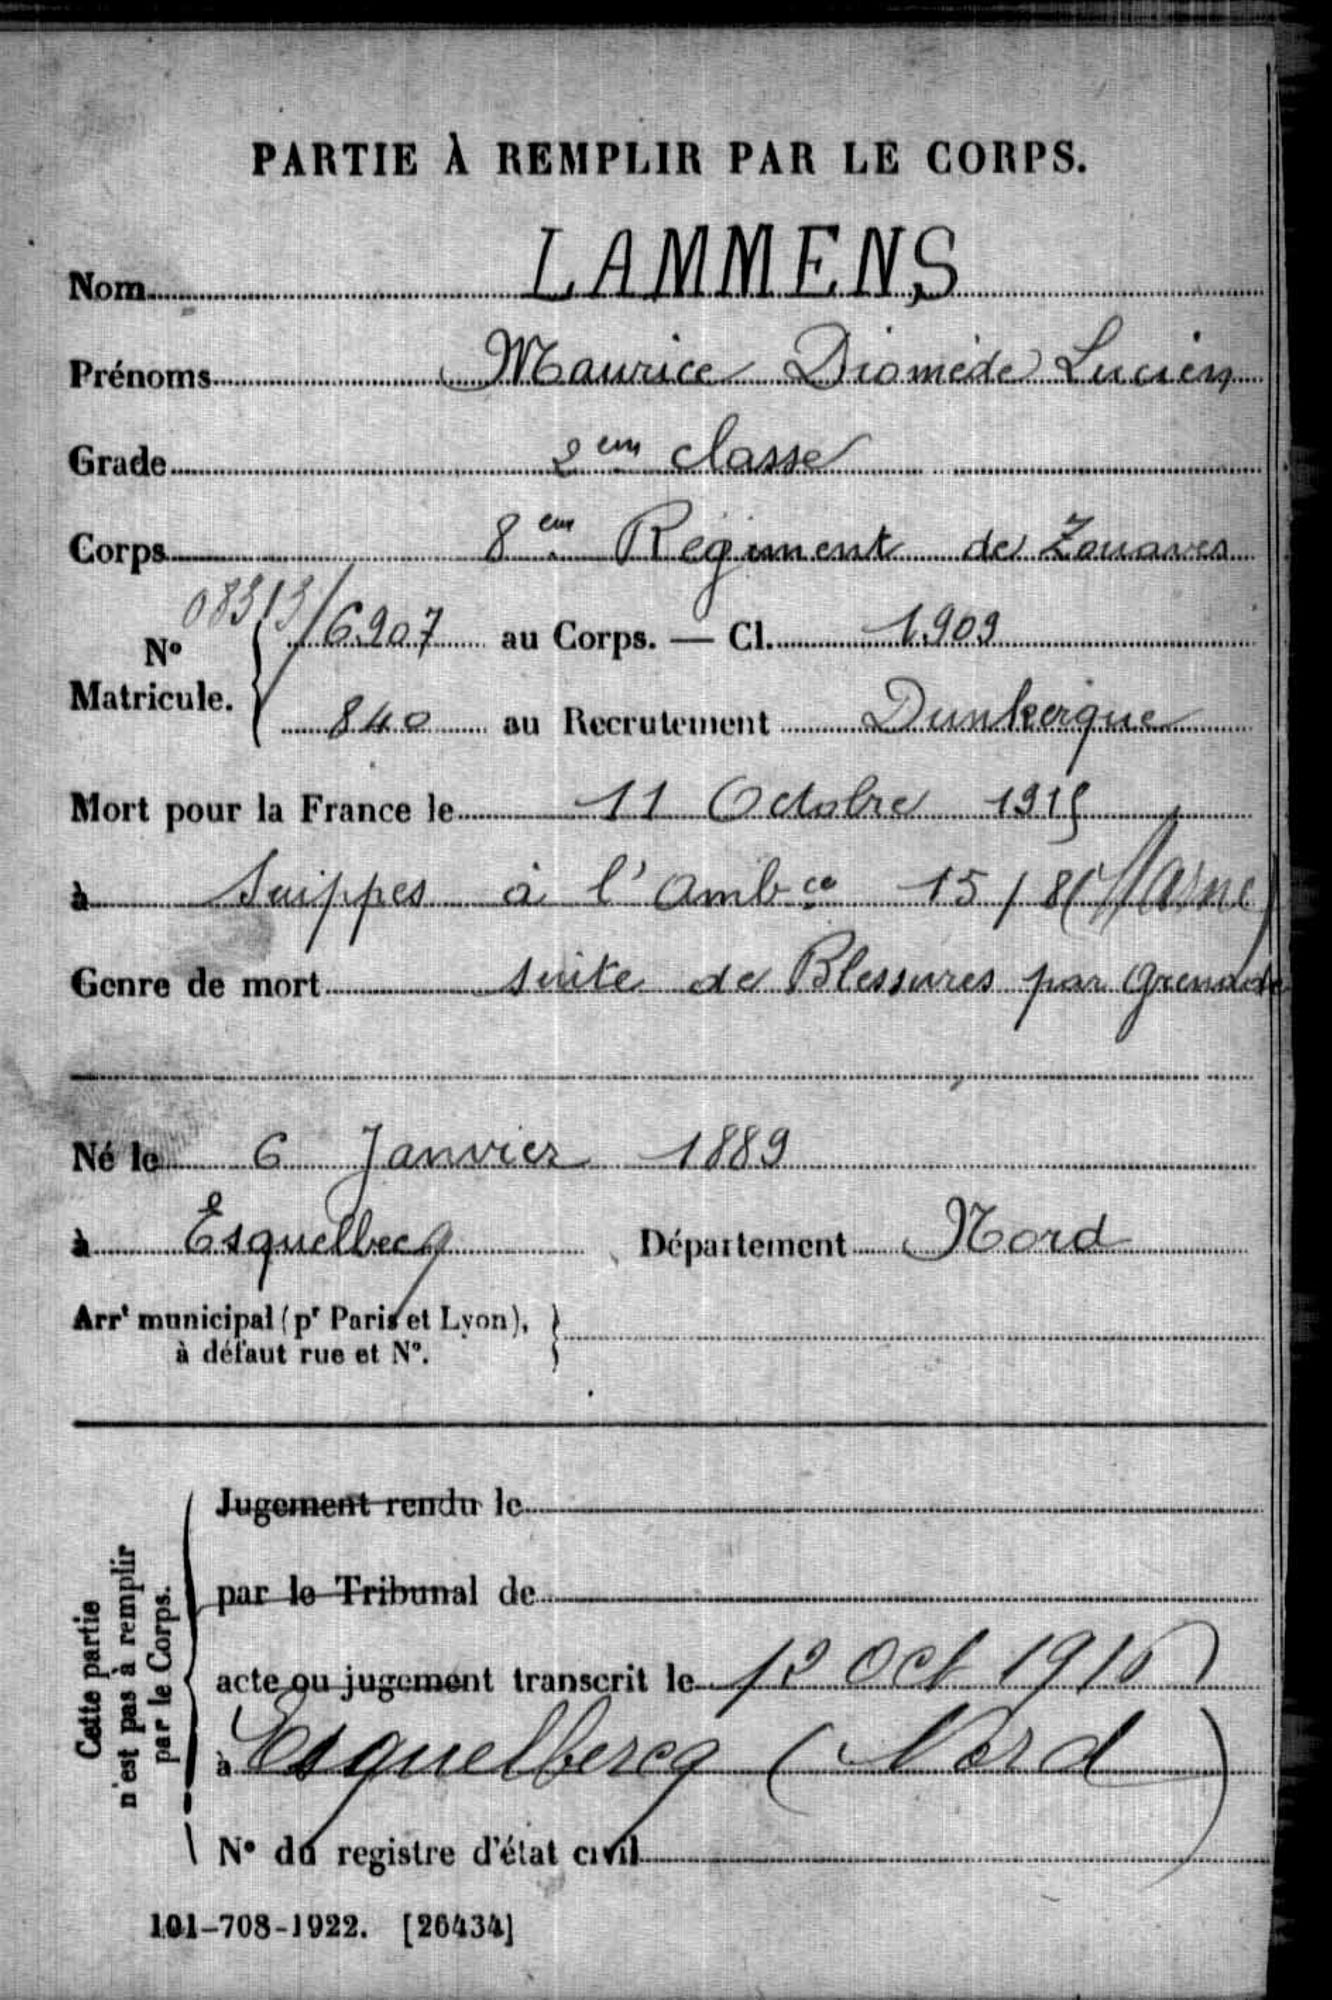 PARTIE À REMPLIR PAR LE CORPS.
Nom LAMMENS
Prénoms Maurice Diomède Lucien
Grade 2em classe
Corps 8em Régiment de Zouaves
N° Matricule. 08313/6907 au Corps. — Cl. 1909
840 au Recrutement Dunkerque
Mort pour la France le 11 Octobre 1915
à Suippes à l'Ambce 15/8 (Marne)
Genre de mort suite de Blessures par grenade
Né le 6 Janvier 1889
à Esquelbecq Département Nord
Arrt municipal (pr Paris et Lyon),
à défaut rue et N°.
Cette partie
n'est pas à remplir
par le Corps.
Jugement rendu le
par le Tribunal de
acte ou jugement transcrit le 12 Oct 1916
à Esquelbercq (Nord)
N° du registre d'état civil
101-708-1922. [26434]